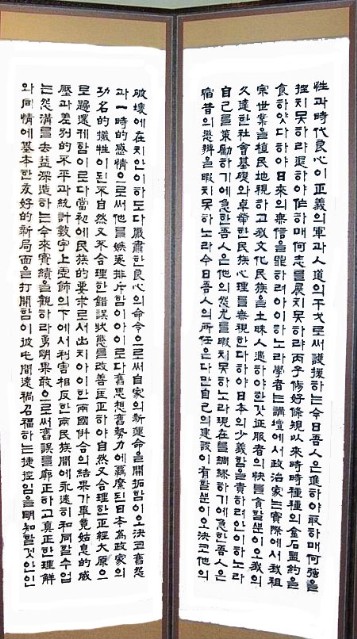 性과時代良心이正義의軍과人道의干戈로써護援하는今日吾人은進하야取하매何强을
挫치못하랴退하야作하매何志를展치못하랴丙子修好條規以來時時種種의金石盟約을
食하얏다하야日本의無信을罪하려아이하노라學者는講壇에서政治家는實際에서我祖
宗世業을植民地視하고我文化民族을土昧人遇하야한갓征服者의快를貪할뿐이오我의
久遠한社會基礎와卓犖한民族心理를無視한다하야日本의少義함을責하려안이하노라
自己를策勵하기에急한吾人은他의怨尤를暇치못하노라現在를綢繆하기에急한吾人은
宿昔의懲辨을暇치못하노라今日吾人의所任은다만自己의建設이有할뿐이오決코他의
破壞에在치안이하도다嚴肅한良心의命令으로써自家의新運命을開拓함이오決코舊怨
과一時的感情으로써他를嫉逐排斥함이아이로다舊思想舊勢力에羈縻된日本爲政家의
功名的犧牲이된不自然又不合理한錯誤狀態를改善匡正하야自然又合理한正經大原으
로歸還케함이로다當初에民族的要求로서出치아이한兩國倂合의結果가畢竟姑息的威
壓과差別的不平과統計數字上虛飾의下에서利害相反한兩民族間에永遠히和同할수업
는怨溝를去益深造하는今來實績을觀하라勇明果敢으로써舊誤를廓正하고眞正한理解
와同情에基本한友好的新局面을打開함이彼此間遠禍召福하는捷徑임을明知할것안인